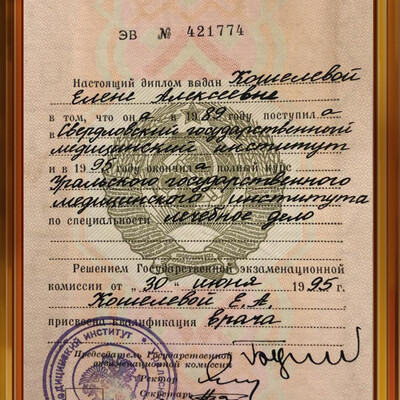 ЭВ № 421774
Настоящий диплом выдан Кошелевой
Елене Алексеевне
в том, что она в 1989 году поступила
в Свердловский государственный
медицинский институт
и в 1995 году окончила полный курс
Уральского государственного
медицинского института
по специальности лечебное дело
Решением Государственной экзаменационной
комиссии от "30" июня 1995 г.
Кошелевой Е.А.
присвоена квалификация врача
Председатель Государственной
экзаменационной комиссии
Ректор
Секретарь
МЕДИЦИНСКИЙ ИНСТИТУТ